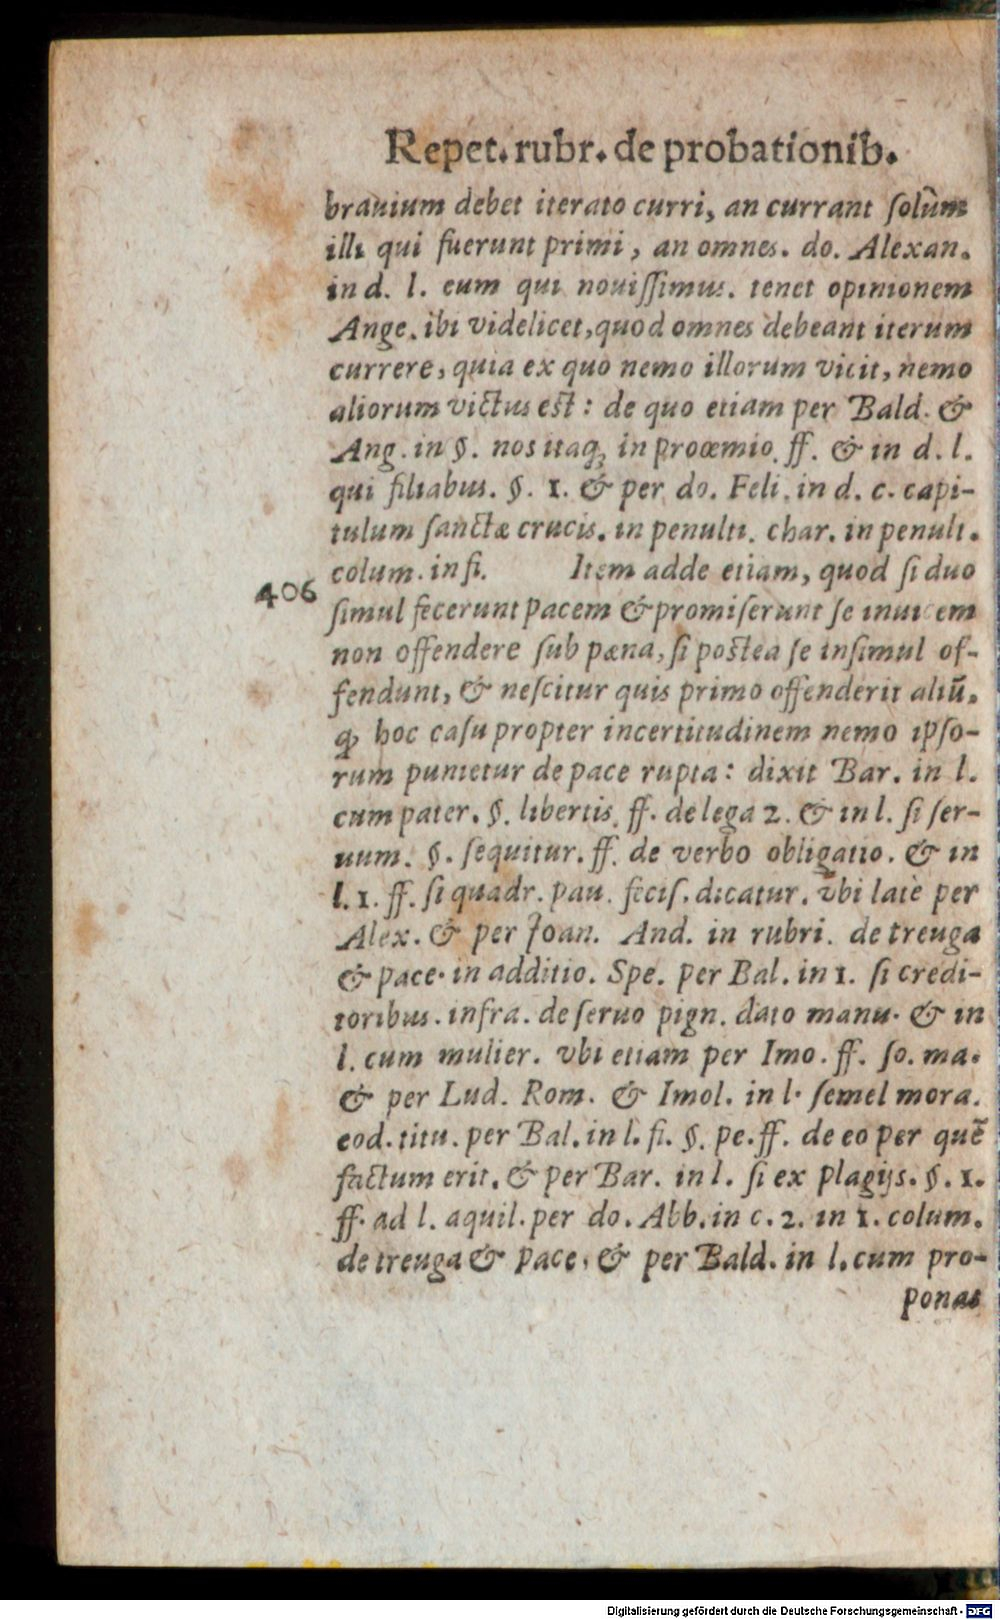 Repet. rubr. de probationib.
brauium debet iterato curri, an currant ſolùm
illi qui fuerunt primi, an omnes. do. Alexan.
in d. l. eum qui nouiſſimus. tenet opinionem
Ange. ibi videlicet, quod omnes debeant iterum
currere, quia ex quo nemo illorum vicit, nemo
aliorum victus est: de quo etiam per Bald. &
Ang. in §. nos itaq; in proœmio. ff. & in d. l.
qui filiabus. §. 1. & per do. Feli. in d. c. capi-
tulum ſanctæ crucis. in penulti. char. in penult.
colum. in fi. Item adde etiam, quod ſi duo
406
ſimul fecerunt pacem & promiſerunt ſe inuicem
non offendere ſub pœna, ſi postea ſe inſimul of-
fendunt, & neſcitur quis primo offenderit aliū.
ꝙ hoc caſu propter incertitudinem nemo ipſo-
rum punietur de pace rupta: dixit Bar. in l.
cum pater. §. libertis. ff. de lega 2. & in l. ſi ſer-
uum. §. ſequitur. ff. de verbo obligatio. & in
l. 1. ff. ſi quadr. pau. feciſ. dicatur. vbi latè per
Alex. & per Joan. And. in rubri. de treuga
& pace. in additio. Spe. per Bal. in 1. ſi credi-
toribus. infra. de ſeruo pign. dato manu. & in
l. cum mulier. vbi etiam per Imo. ff. ſo. ma.
& per Lud. Rom. & Imol. in l. ſemel mora.
eod. titu. per Bal. in l. fi. §. pe. ff. de eo per quē
factum erit. & per Bar. in l. ſi ex plagijs. §. 1.
ff. ad l. aquil. per do. Abb. in c. 2. in 1. colum.
de treuga & pace. & per Bald. in l. cum pro-
ponas
Digitalisierung gefördert durch die Deutsche Forschungsgemeinschaft - DFG